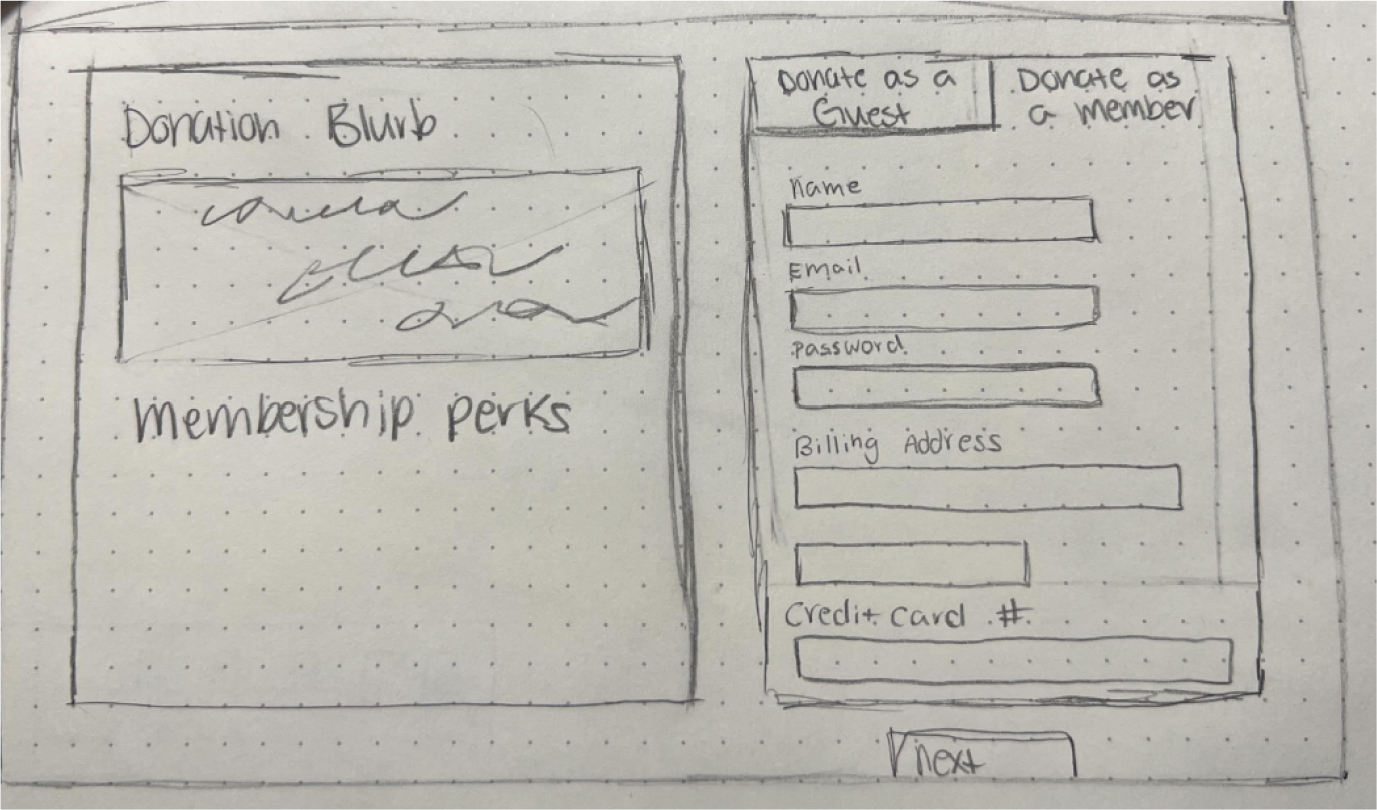 Donation Blurb
Membership perks
Donate as a
Guest
Donate as
a member
name
Email
Password
Billing Address
Credit Card #
next